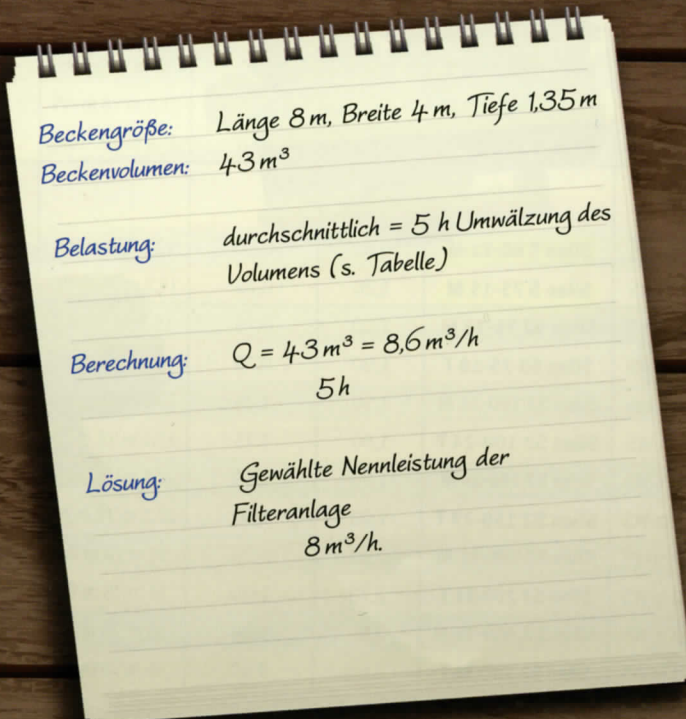 Beckengröße: Länge 8 m, Breite 4 m, Tiefe 1,35 m
Beckenvolumen: 43 m³
Belastung: durchschnittlich = 5 h Umwälzung des
Volumens (s. Tabelle)
Berechnung: Q = 43 m³ = 8,6 m³/h
5 h
Lösung: Gewählte Nennleistung der
Filteranlage
8 m³/h.